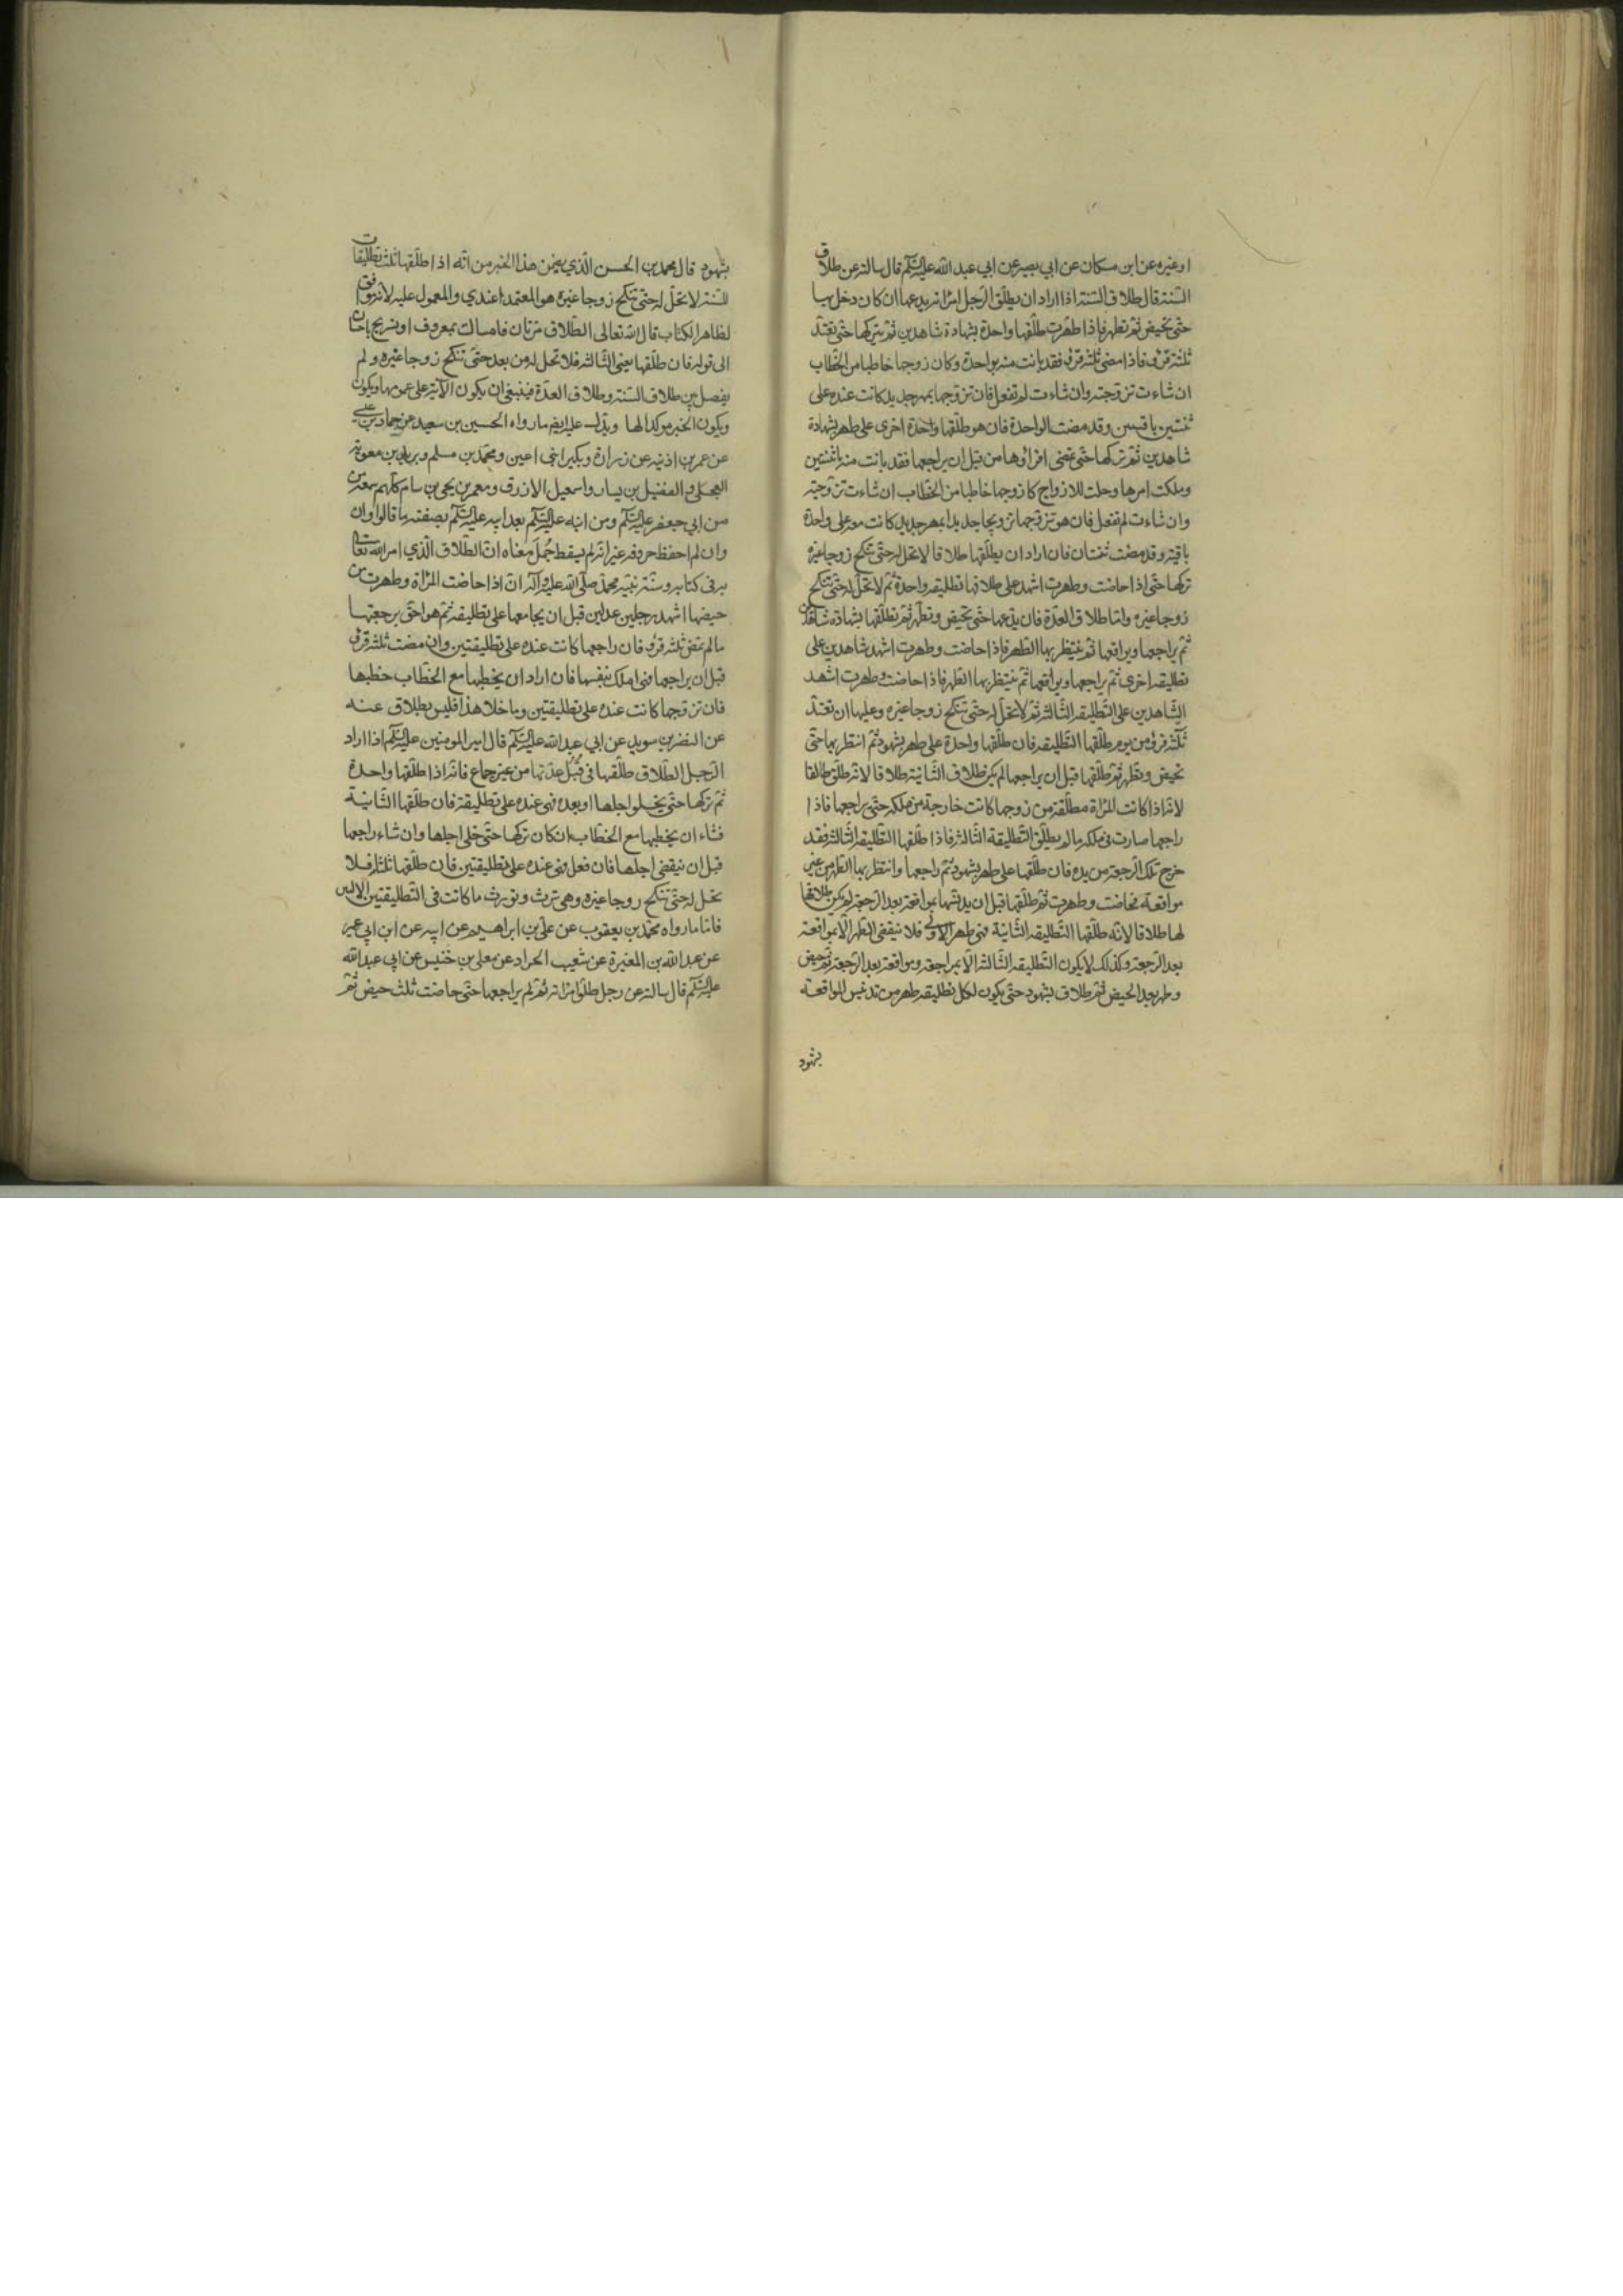 او غيره عن ابن مسكان عن ابي بصير عن ابي عبد الله عليه السلم قال سالته عن طلاق
السنة قال طلاق السنة اذا اراد ان يطلق الرجل امراته يدعها ان كان دخل بها
حتى تحيض ثم تطهر فاذا طهرت طلقها واحدة بشهادة شاهدين ثم يتركها حتى تعتد
ثلثة قرؤ فاذا مضى ثلثة قرؤ فقد بانت منه بواحدة وكان زوجها خاطبا من الخطاب
ان شاءت تزوجته وان شاءت لم تفعل فان تزوجها بمهر جديد كانت عنده على
ثنتين باقيتين وقد مضت الواحدة فان هو طلقها واحدة اخرى على طهر بشهادة
شاهدين ثم تركها حتى تمضى اقراؤها من قبل ان يراجعها فقد بانت منه باثنتين
وملكت امرها وحلت للازواج وكان زوجها خاطبا من الخطاب ان شاءت تزوجته
وان شاءت لم تفعل فان هو تزوجها تزويجا جديدا بمهر جديد كانت معه على واحدة
باقية وقد مضت ثنتان فان اراد ان يطلقها طلاقا لا تحل له حتى تنكح زوجا غيره
تركها حتى اذا حاضت وطهرت اشهد على طلاقها تطليقة واحدة ثم لا تحل له حتى تنكح
زوجا غيره واما طلاق العدة فان يدعها حتى تحيض وتطهر ثم يطلقها بشهادة شاهدين
ثم يراجعها ويواقعها ثم ينتظر بها الطهر فاذا حاضت وطهرت اشهد شاهدين على
تطليقة اخرى ثم يراجعها ويواقعها ثم ينتظر بها الطهر فاذا حاضت وطهرت اشهد
الشاهدين على التطليقة الثالثة ثم لا تحل له حتى تنكح زوجا غيره وعليها ان تعتد
ثلثة قرؤ من يوم طلقها التطليقة فان طلقها واحدة على طهر بشهود ثم انتظر بها حتى
تحيض وتطهر ثم طلقها قبل ان يراجعها لم يكن طلاق الثانية طلاقا لانه طلق طالقا
لانه اذا كانت المراة مطلقة من زوجها كانت خارجة من ملكه حتى يراجعها فاذا
راجعها صارت فى ملكه ما لم يطلق التطليقة الثالثة فاذا طلقها التطليقة الثالثة فقد
خرج تلك الرجعة من يده فان طلقها على طهر بشهود ثم راجعها وانتظر بها الطهر من غير
مواقعة فحاضت وطهرت ثم طلقها قبل ان يدنسها بمواقعة بعد الرجعة لم يكن طلاقها
لها طلاقا لانه طلقها التطليقة الثانية فى طهر الاولى فلا ينقضى الطهر الا بمواقعة
بعد الرجعة وكذلك لا يكون التطليقة الثالثة الا بمراجعة ومواقعة بعد الرجعة ثم حيض
وطهر بعد الحيض ثم طلاق بشهود حتى يكون لكل تطليقة طهر من تدنيس المواقعة
بشهود
بشهود قال محمد بن الحسن الذي يضمن هذا الخبر من انه اذا طلقها ثلث تطليقات
للسنة لا تحل له حتى تنكح زوجا غيره هو المعتمد عندي والمعمول عليه لانه موافق
لظاهر الكتاب قال الله تعالى الطلاق مرتان فامساك بمعروف او تسريح باحسان
الى قوله فان طلقها يعنى الثالثة فلا تحل له من بعد حتى تنكح زوجا غيره ولم
يفصل بين طلاق السنة وطلاق العدة فينبغى ان يكون الاية على عمومها ويكون
ويكون الخبر موكدا لها ويدل عليه ايضا ما رواه الحسين بن سعيد عن حماد بن عيسى
عن عمر بن اذينة عن زرارة وبكير ابنى اعين ومحمد بن مسلم وبريد بن معوية
العجلى والفضيل بن يسار واسمعيل الازرق ومعمر بن يحيى بن سام كلهم سمعه من
من ابي جعفر عليه السلم ومن ابنه عليه السلم بعد ابيه عليه السلم بصفة ما قالوا وان
وان لم احفظ حروفه غير انه لم يسقط جمل معناه ان الطلاق الذي امر الله تعالى
به فى كتابه وسنة نبيه محمد صلى الله عليه وآله ان اذا حاضت المراة وطهرت من
حيضها اشهد رجلين عدلين قبل ان يجامعها على تطليقة ثم هو احق برجعتها
ما لم تمض ثلثة قرؤ فان راجعها كانت عنده على تطليقتين وان مضت ثلثة قرؤ
قبل ان يراجعها فهى املك بنفسها فان اراد ان يخطبها مع الخطاب خطبها
فان تزوجها كانت عنده على تطليقتين وما خلا هذا فليس بطلاق عنه
عن النضر بن سويد عن ابي عبد الله عليه السلم قال امير المومنين عليه السلم اذا اراد
الرجل الطلاق طلقها فى قبل عدتها من غير جماع فانه اذا طلقها واحدة
ثم تركها حتى يخلو اجلها او بعده فهى عنده على تطليقة فان طلقها الثانية
فشاء ان يخطبها مع الخطاب ان كان تركها حتى خلى اجلها وان شاء راجعها
قبل ان ينقضى اجلها فان فعل فهى عنده على تطليقتين فان طلقها ثلثا فلا
تحل له حتى تنكح زوجا غيره وهى ترث وتورث ما كانت فى التطليقتين الاوليين
فاما ما رواه محمد بن يعقوب عن على بن ابراهيم عن ابيه عن ابن ابي عمير
عن عبد الله بن المغيرة عن شعيب الحداد عن معلى بن خنيس عن ابي عبد الله
عليه السلم قال سالته عن رجل طلق امراته ثم لم يراجعها حتى حاضت ثلث حيض ثم